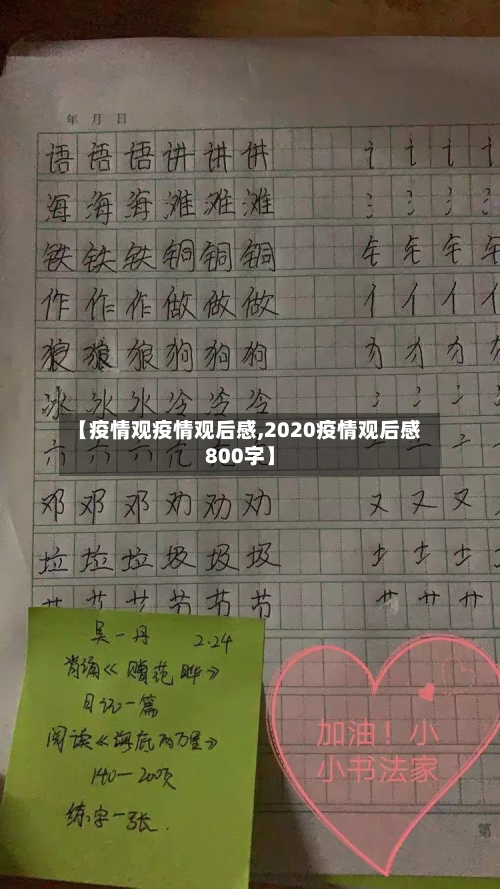 年 月 日
语 语 语 讲 讲 讲 讠 讠 讠 讠
海 海 海 滩 滩 滩 氵 氵 氵 氵
铁 铁 铁 铜 铜 铜 钅 钅 钅 钅
作 作 作 做 做 做 亻 亻 亻 亻
狼 狼 狼 狗 狗 狗 犭 犭 犭 犭
冰 冰 冰 冷 冷 冷 冫 冫 冫 冫
【疫情观疫情观后感,2020疫情观后感
800字】
六 六 六
邓 邓 邓 劝 劝 劝 又 又 又 又
垃 垃 垃 圾 圾 圾 土 土 土 土
艹 艹 艹
节 节 节
吴一丹 2.24
背诵《赠范晔》
日记一篇
阅读《海底两万里》
140-200页
练字一张.
加油！小
小书法家
第